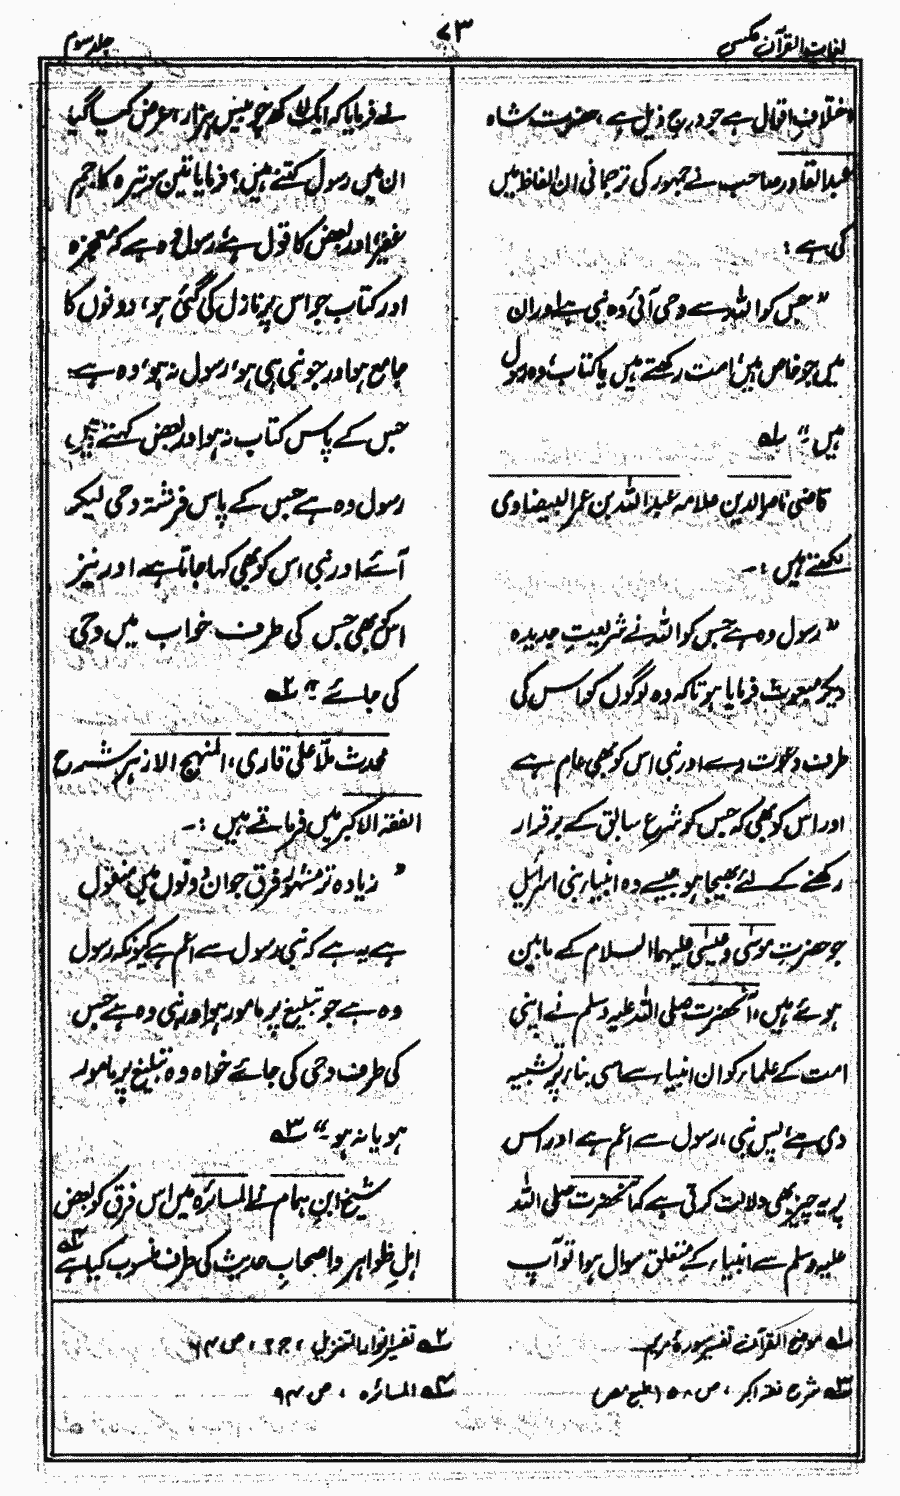 لغات القرآن مکسی
۷۳
جلد سوم
اختلافِ اقوال ہے جو درج ذیل ہے، حضرت شاہ
عبدالقادر صاحب نے جمہور کی ترجمانی ان الفاظ میں
کی ہے :
” جس کو اللہ سے وحی آئی وہ نبی ہے اور ان
میں جو خاص ہیں، امت رکھتے ہیں یا کتاب، وہ رسول
ہیں ۔“ لہ
قاضی ناصر الدین علامہ عبد اللہ بن عمر البیضاوی
لکھتے ہیں :۔
” رسول وہ ہے جس کو اللہ نے شریعتِ جدیدہ
دیکر مبعوث فرمایا ہو تاکہ وہ لوگوں کو اس کی
طرف دعوت دے اور نبی اس کو بھی عام ہے
اور اس کو بھی کہ جس کو شرع سابق کے برقرار
رکھنے کے لئے بھیجا ہو جیسے وہ انبیاء بنی اسرائیل
جو حضرت موسٰی و عیسٰی علیہما السلام کے مابین
ہوئے ہیں، آنحضرت صلی اللہ علیہ وسلم نے اپنی
امت کے علماء کو ان انبیاء سے اسی بناء پر تشبیہ
دی ہے، پس نبی، رسول سے اعم ہے اور اس
پر یہ چیز بھی دلالت کرتی ہے کہ آنحضرت صلی اللہ
علیہ وسلم سے انبیاء کے متعلق سوال ہوا تو آپ
نے فرمایا کہ ایک لاکھ چوبیس ہزار، عرض کیا گیا
ان میں رسول کتنے ہیں؟ فرمایا تین سو تیرہ کا جم
غفیر، اور بعض کا قول ہے، رسول وہ ہے کہ معجزہ
اور کتاب جو اس پر نازل کی گئی ہو، دونوں کا
جامع ہو اور جو نبی ہی ہو، رسول نہ ہو، وہ ہے
جس کے پاس کتاب نہ ہو اور بعض کہتے ہیں
رسول وہ ہے جس کے پاس فرشتہ وحی لیکر
آئے اور نبی اس کو بھی کہا جاتا ہے اور نیز
اس کو بھی جس کی طرف خواب میں وحی
کی جائے ۔“ ۲ہ
محدث ملّا علی قاری، المنہج الازہر شرح
الفقہ الاکبر میں فرماتے ہیں :۔
” زیادہ تر مشہور فرق جو ان دونوں میں منقول
ہے یہ ہے کہ نبی، رسول سے اعم ہے کیونکہ رسول
وہ ہے جو تبلیغ پر مامور ہوا اور نبی وہ ہے جس
کی طرف وحی کی جائے خواہ وہ تبلیغ پر مامور
ہو یا نہ ہو ۔“ ۳ہ
شیخ ابن ہمام نے المسائرہ میں اس فرق کو بعض
اہلِ ظواہر و اصحابِ حدیث کی طرف منسوب کیا ہے ۴ہ
لہ موضح القرآن تفسیر سورۂ مریم
۲ہ تفسیر انوار التنزیل ، ج ۲ ، ص ۶۴
۳ہ شرح فقہ اکبر ، ص ۵۸ (طبع مصر)
۴ہ المسائرہ ، ص ۹۴